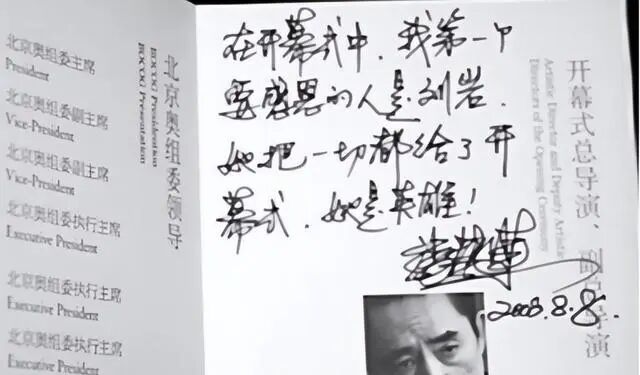 北京奥组委主席
President
北京奥组委副主席
Vice-President
北京奥组委副主席
Vice-President
北京奥组委执行主席
Executive President
北京奥组委执行主席
Executive President
北京奥组委执行主席
Executive President
北京奥组委领导
BOCOG Presidential
BOCOG Presentation
在开幕式中，我第一个
要感恩的人是刘岩，
她把一切都给了开
幕式，她是英雄！
2008.8.8.
开幕式总导演、副总导演
Artistic Director and Deputy Artistic
Directors of the Opening Ceremony